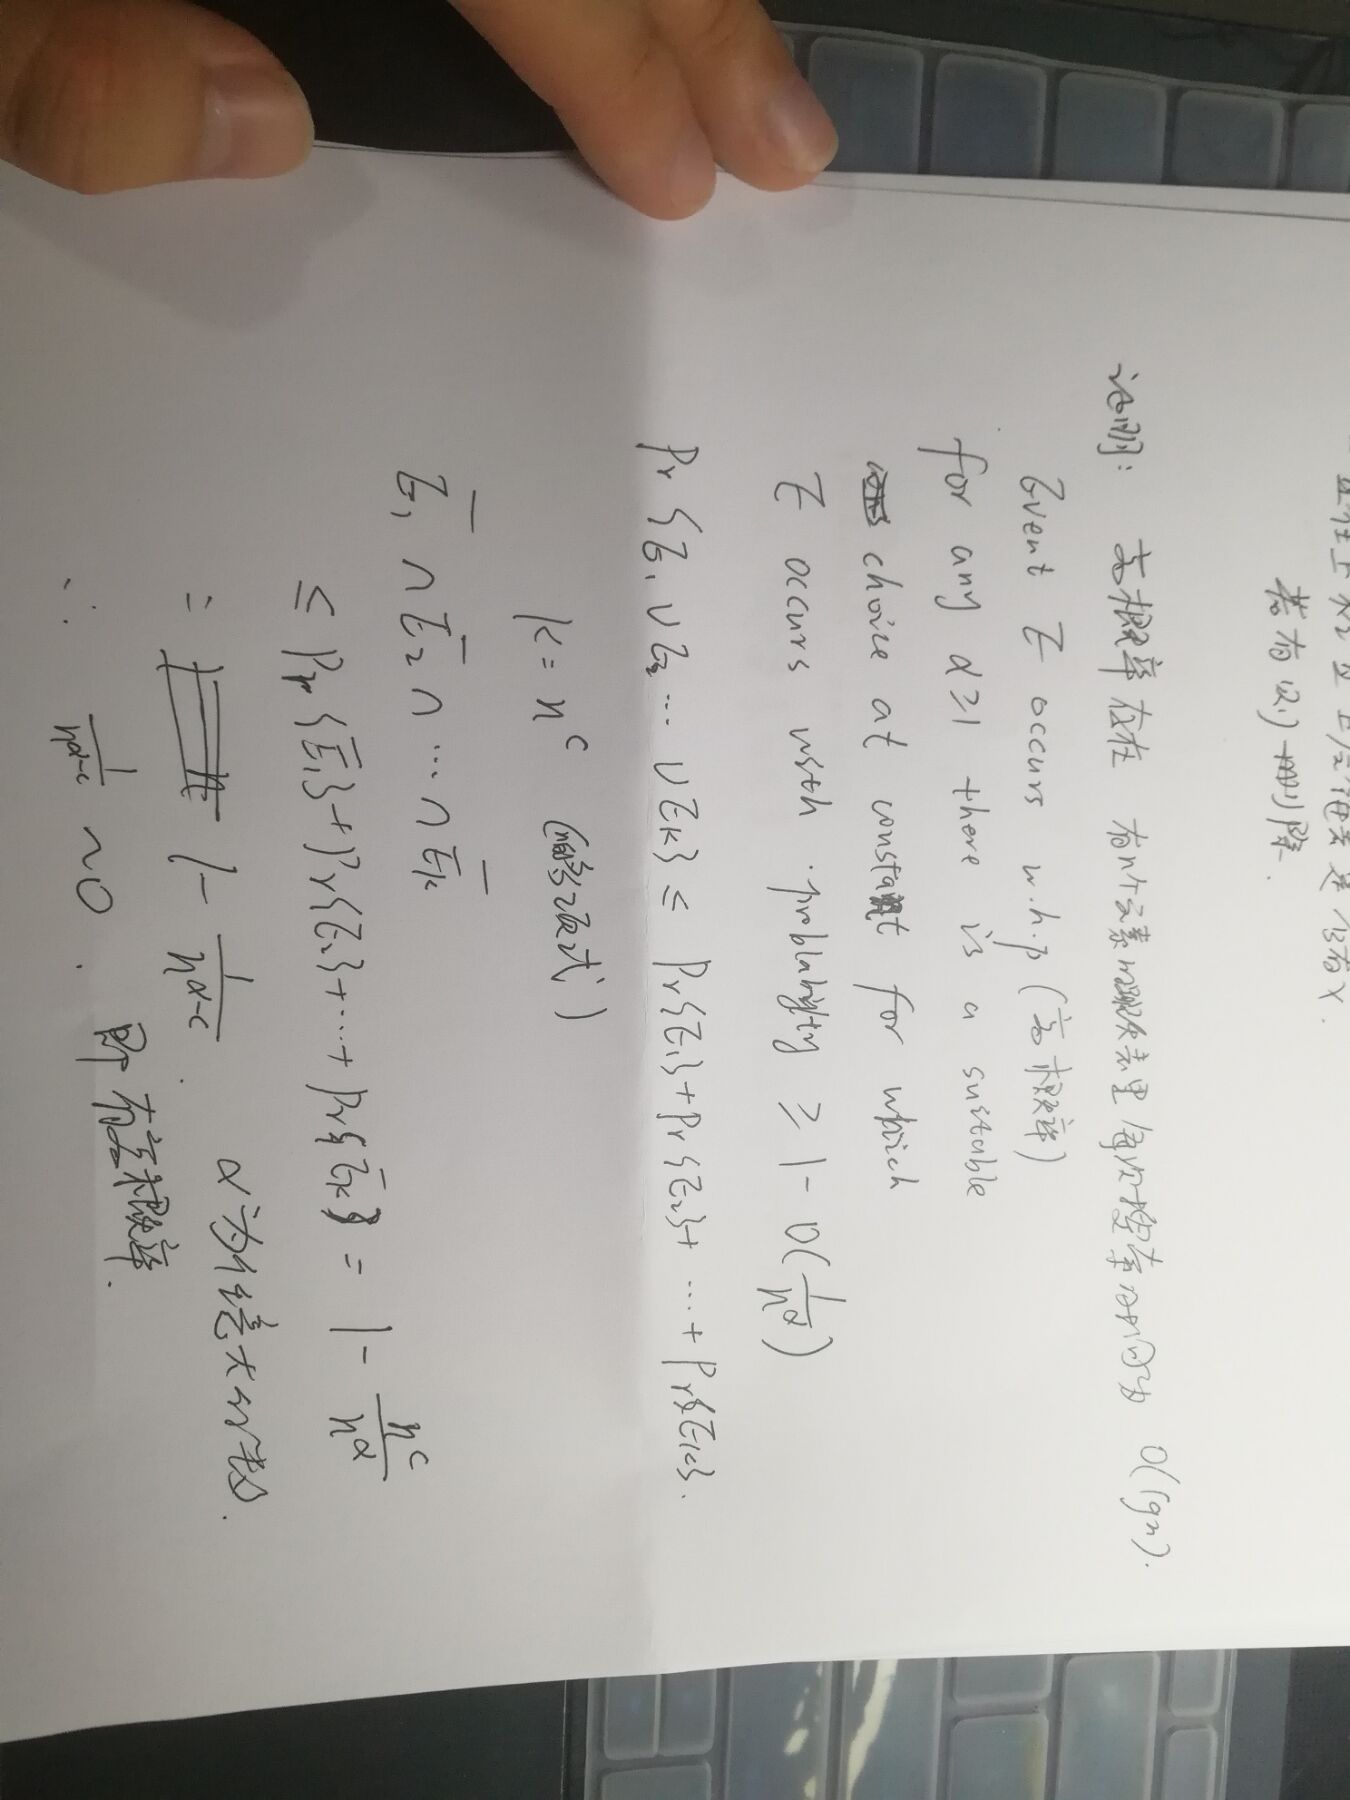 一直往上 上层链表是否有x.
若有则一删除.
证明: 高概率存在 有n个元素的跳跃表里每次搜索时间为 O(lgn).
Event E occurs w.h.p (高概率)
for any α≥1 there is a suitable
choice at constant for which
E occurs with problability ≥ 1- O(1/n^α)
Pr{E₁∪E₂ ... ∪Ek} ≤ Pr{E₁}+Pr{E₂}+ ...+Pr{Ek}.
k= n^c (n的多项式)
E̅₁ ∩ E̅₂ ∩ ... ∩ E̅k
≤ Pr{E̅₁}+Pr{E̅₂}+...+Pr{E̅k} = 1- n^c/n^α
= 1- 1/n^(α-c). α为任意大的数.
∴ 1/n^(α-c) ~0. 即有高概率.